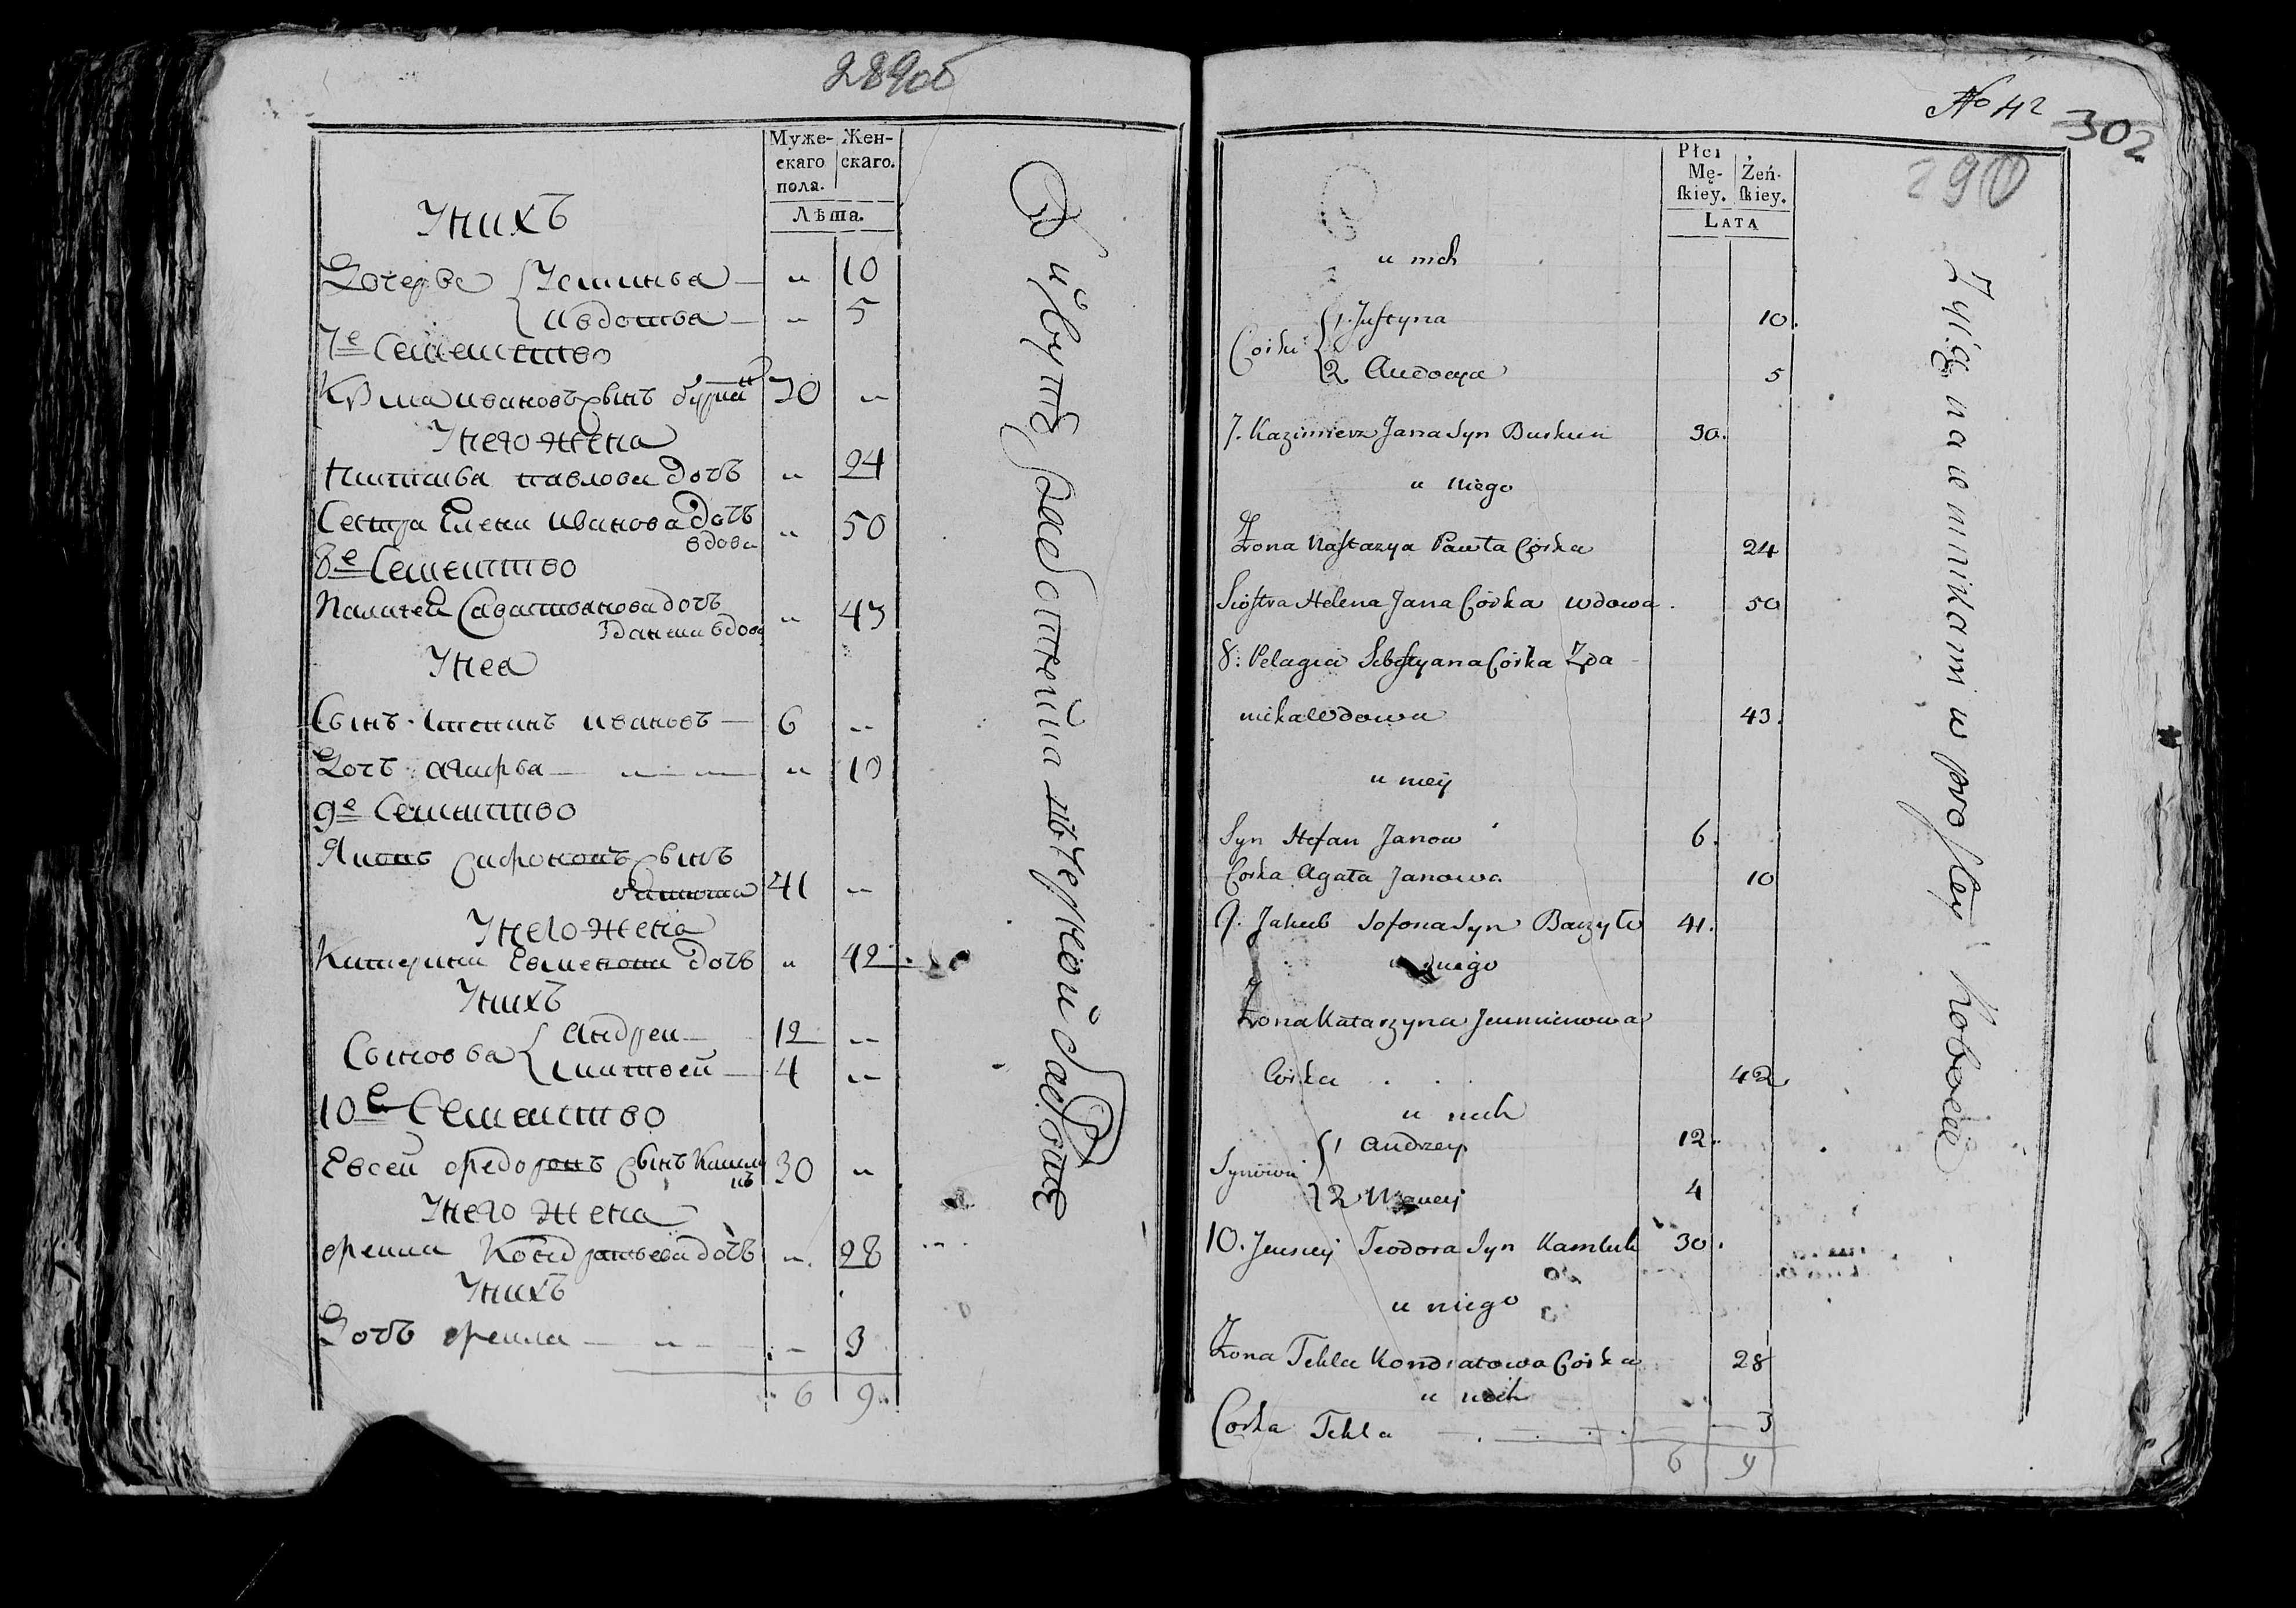 289 об
Муже-
скаго
пола.
Жен-
скаго.
Лѣта.
У нихъ
Дочерье { Устинья — „ 10
Авдотья — „ 5
7е Семейство
Кузма ивановъ сынъ 30 „
У него жена
Настасья павлова дочь „ 24
Сестра Елена иванова дочь
вдова „ 50
8е Семейство
Палагея Савастьянова дочь
вдова „ 43
У нея
Сынъ Степанъ ивановъ — 6 „
Дочь агафья — „ — „ 10
9е Семейство
Яковъ Сафоновъ сынъ
41 „
У него жена
Катерина дочь „ 42
У нихъ
Сыновья { андреи — 12 „
4 „
10е Семейство
Евсей федоровъ сынъ 30 „
У него жена
фекла Кондратьева дочь „ 28
У нихъ
Дочь фекла — „ — 3
6 9
живутъ работниками по черной работе
No 42
302
290
Płci
Mę-
ſkiey.
Żeń-
ſkiey.
LATA
u nich
Corki { 1. Justyna 10.
2 Audocya 5
7. Kazimierz Jana Syn Burkun 30.
u niego
Żona Nastazya Pawła Córka 24
Siostra Helena Jana Córka wdowa . 50
8: Pelagia Sebestyana Córka Zda
nika wdowa 43.
u niey
Syn Stefan Janow 6.
Corka Agata Janowa 10
9. Jakub Sofona Syn Bazył 41.
u niego
Żona Katarzyna
Córka . . . 42.
u nich
Synowie { 1 Andrzey 12.
2 4
10. Jeusiej Teodora Syn Kambuk 30.
u niego
Żona Tekla Kondratowa Córka 28
u nich
Corka Tekla 3
6 9
Zyią na w nnikami w prostey Robocie